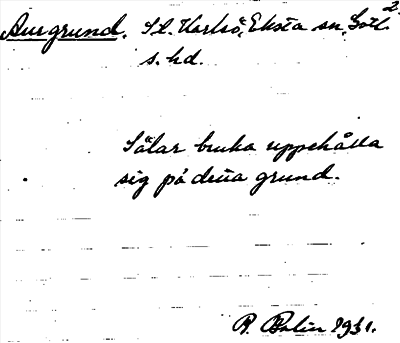 Aurgrund. St. Karlsö, Eksta sn, Gotl. 2.
s. hd.
Sälar bruka uppehålla
sig på detta grund.
P. Bolin 1931.